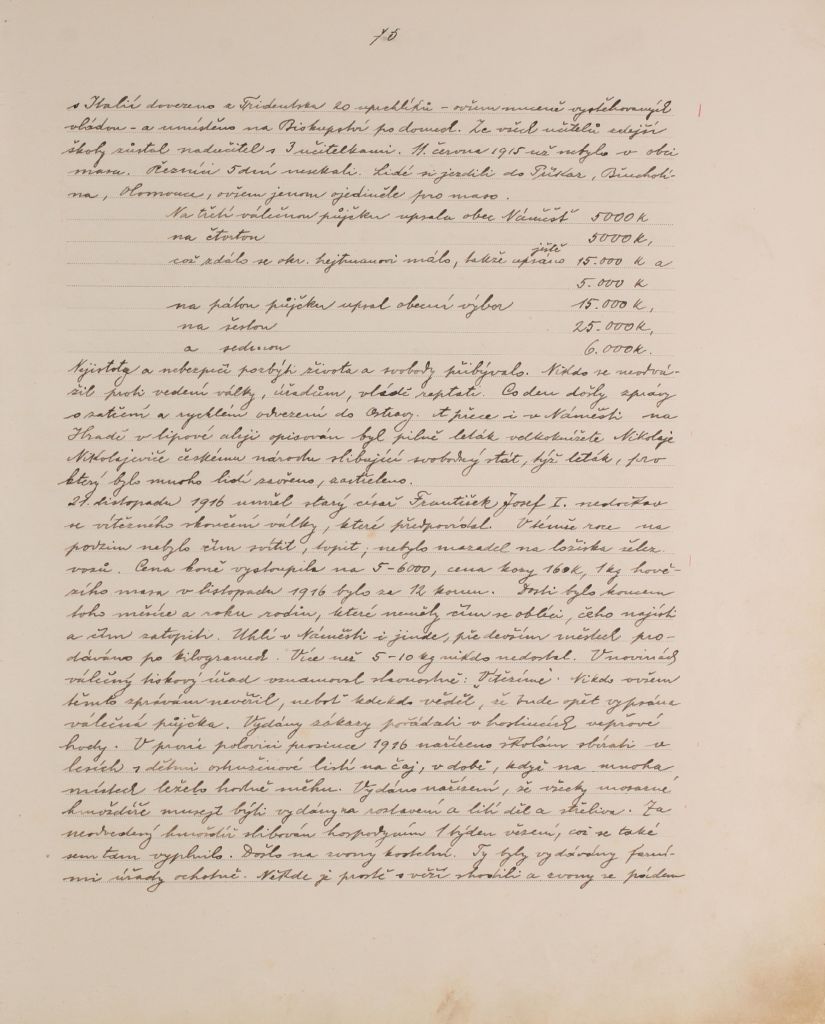 75
s Italií dovezeno z Tridentska 20 uprchlíků - ovšem nuceně vystěhovaných
vládou - a umístěno na Biskupství po domech. Ze všech učitelů zdejší
školy zůstal nadučitel s 3 učitelkami. 11. června 1915 už nebylo v obci
masa. Řezníci 5 dní nesekali. Lidé si jezdili do Příkaz, Břuchoti-
na, Olomouce, ovšem jenom ojediněle pro maso.
Na třetí válečnou půjčku upsala obec Náměšť 5000 K
na čtvrtou 5000 K,
což zdálo se okr. hejtmanovi málo, takže upsáno ještě 15.000 K a
5.000 K
na pátou půjčku upsal obecní výbor 15.000 K,
na šestou 25.000 K,
a sedmou 6.000 K.
Nejistota a nebezpečí pozbýti života a svobody přibývalo. Nikdo se neodvá-
žil proti vedení války, úřadům, vládě reptati. Co den došly zprávy
o zatčení a rychlém odvezení do Ostravy. A přece i v Náměšti na
Hradě v lipové aleji opisován byl pilně leták velkoknížete Nikolaje
Nikolajeviče českému národu slibující svobodný stát, týž leták, pro
který bylo mnoho lidí zavřeno, zastřeleno.
21. listopadu 1916 umřel starý císař František Josef I. nedočkav
se vítězného skončení války, které předpovídal. V témže roce na
podzim nebylo čím svítit, topit, nebylo mazadel na ložiska želez.
vozů. Cena koně vystoupila na 5-6000, cena kozy 160K, 1 kg hově-
zího masa v listopadu 1916 bylo za 12 korun. Dosti bylo koncem
toho měsíce a roku rodin, které neměly čím se obléci, čeho najísti
a čím zatopiti. Uhlí v Náměšti i jinde, především městech pro-
dáváno po kilogramech. Více než 5-10 kg nikdo nedostal. V novinách
válečný tiskový úřad oznamoval slavnostně: "Vítězíme". Nikdo ovšem
těmto zprávám nevěřil, neboť kdekdo věděl, že bude opět vypsána
válečná půjčka. Vydány zákazy pořádati v hostincích vepřové
hody. V první polovici prosince 1916 nařízeno školám sbírati v
lesích s dětmi ostružinové listí na čaj, v době, když na mnoha
místech leželo hodně sněhu. Vydáno nařízení, že všecky mosazné
hmoždíře musejí býti vydány na roztavení a lití děl a střeliva. Za
neodvedený hmoždíř slibován hospodyním 1 týden vězení, což se také
sem tam vyplnilo. Došlo na zvony kostelní. Ty byly vydávány farní-
mi úřady ochotně. Někde je prostě s věží shodili a zvony se pádem